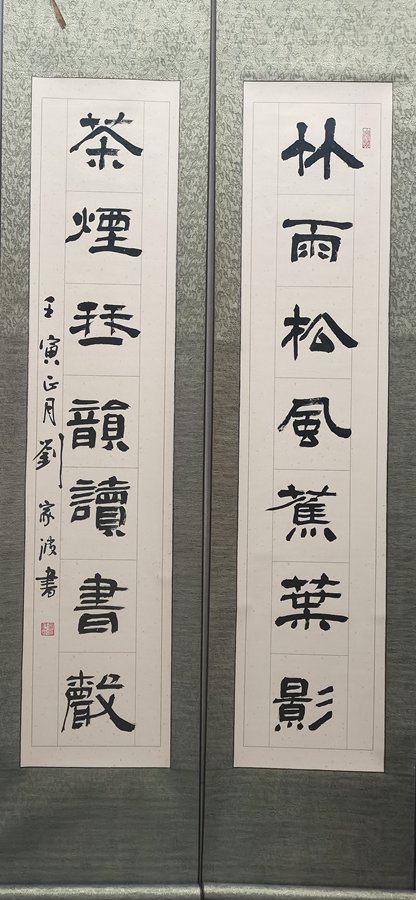 林雨松風蕉葉影
茶煙琴韻讀書聲
壬寅正月劉家波書